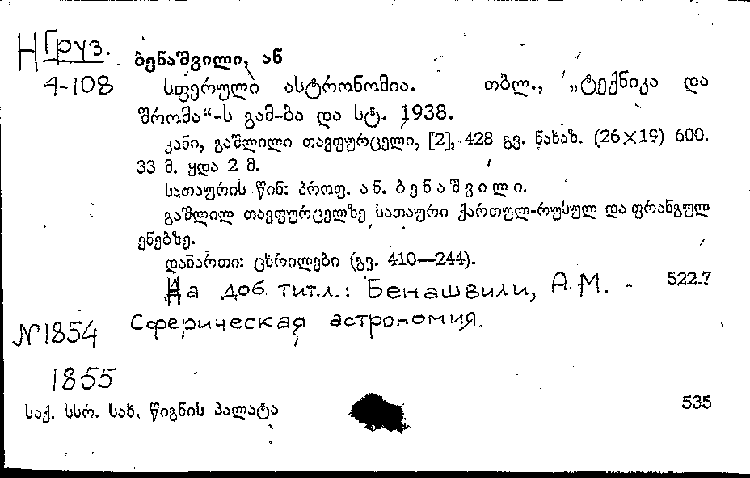 Н Груз. ბენაშვილი, ან
4-108 სფერული ასტრონომია. თბლ., „ტექნიკა და
შრომა“-ს გამ-ბა და სტ. 1938.
კანი, გაშლილი თავფურცელი, [2], 428 გვ. ნახაზ. (26×19) 600.
33 მ. ყდა 2 მ.
სათაურის წინ: პროფ. ან. ბენაშვილი.
გაშლილ თავფურცელზე სათაური ქართულ-რუსულ და ფრანგულ
ენებზე.
დანართი: ცხრილები (გვ. 410—244).
На доб. тит.л.: Бенашвили, А.М. 522.7
№1854 Сферическая астрономия.
1855
საქ. სსრ. სახ. წიგნის პალატა 535